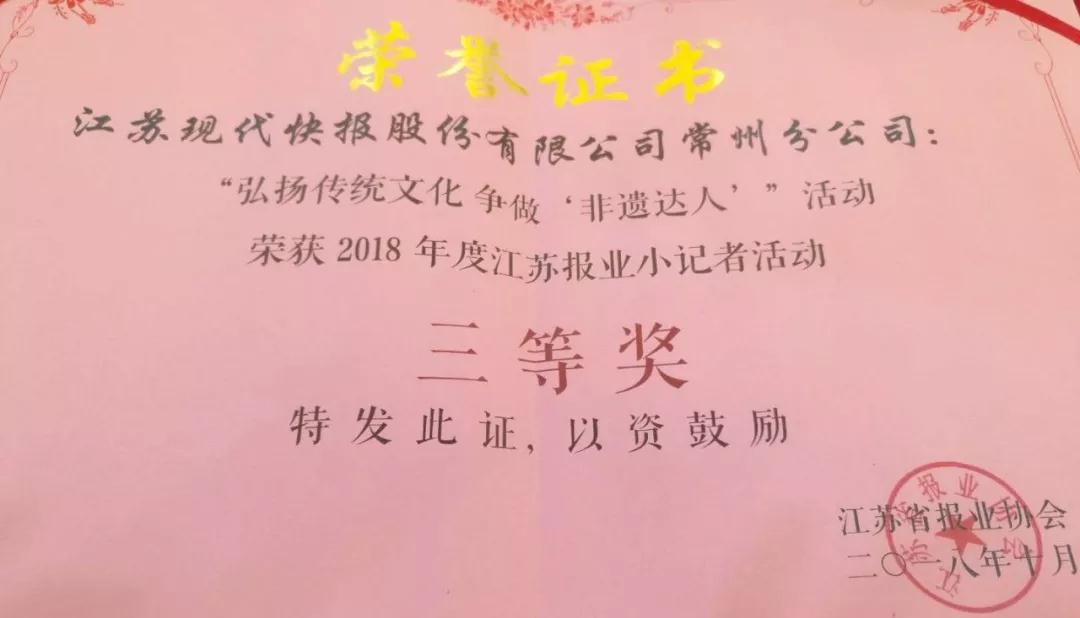 荣誉证书
江苏现代快报股份有限公司常州分公司：
“弘扬传统文化 争做‘非遗达人’”活动
荣获 2018 年度江苏报业小记者活动
三等奖
特发此证，以资鼓励
江苏省报业协会
二〇一八年十月
江苏省报业协会